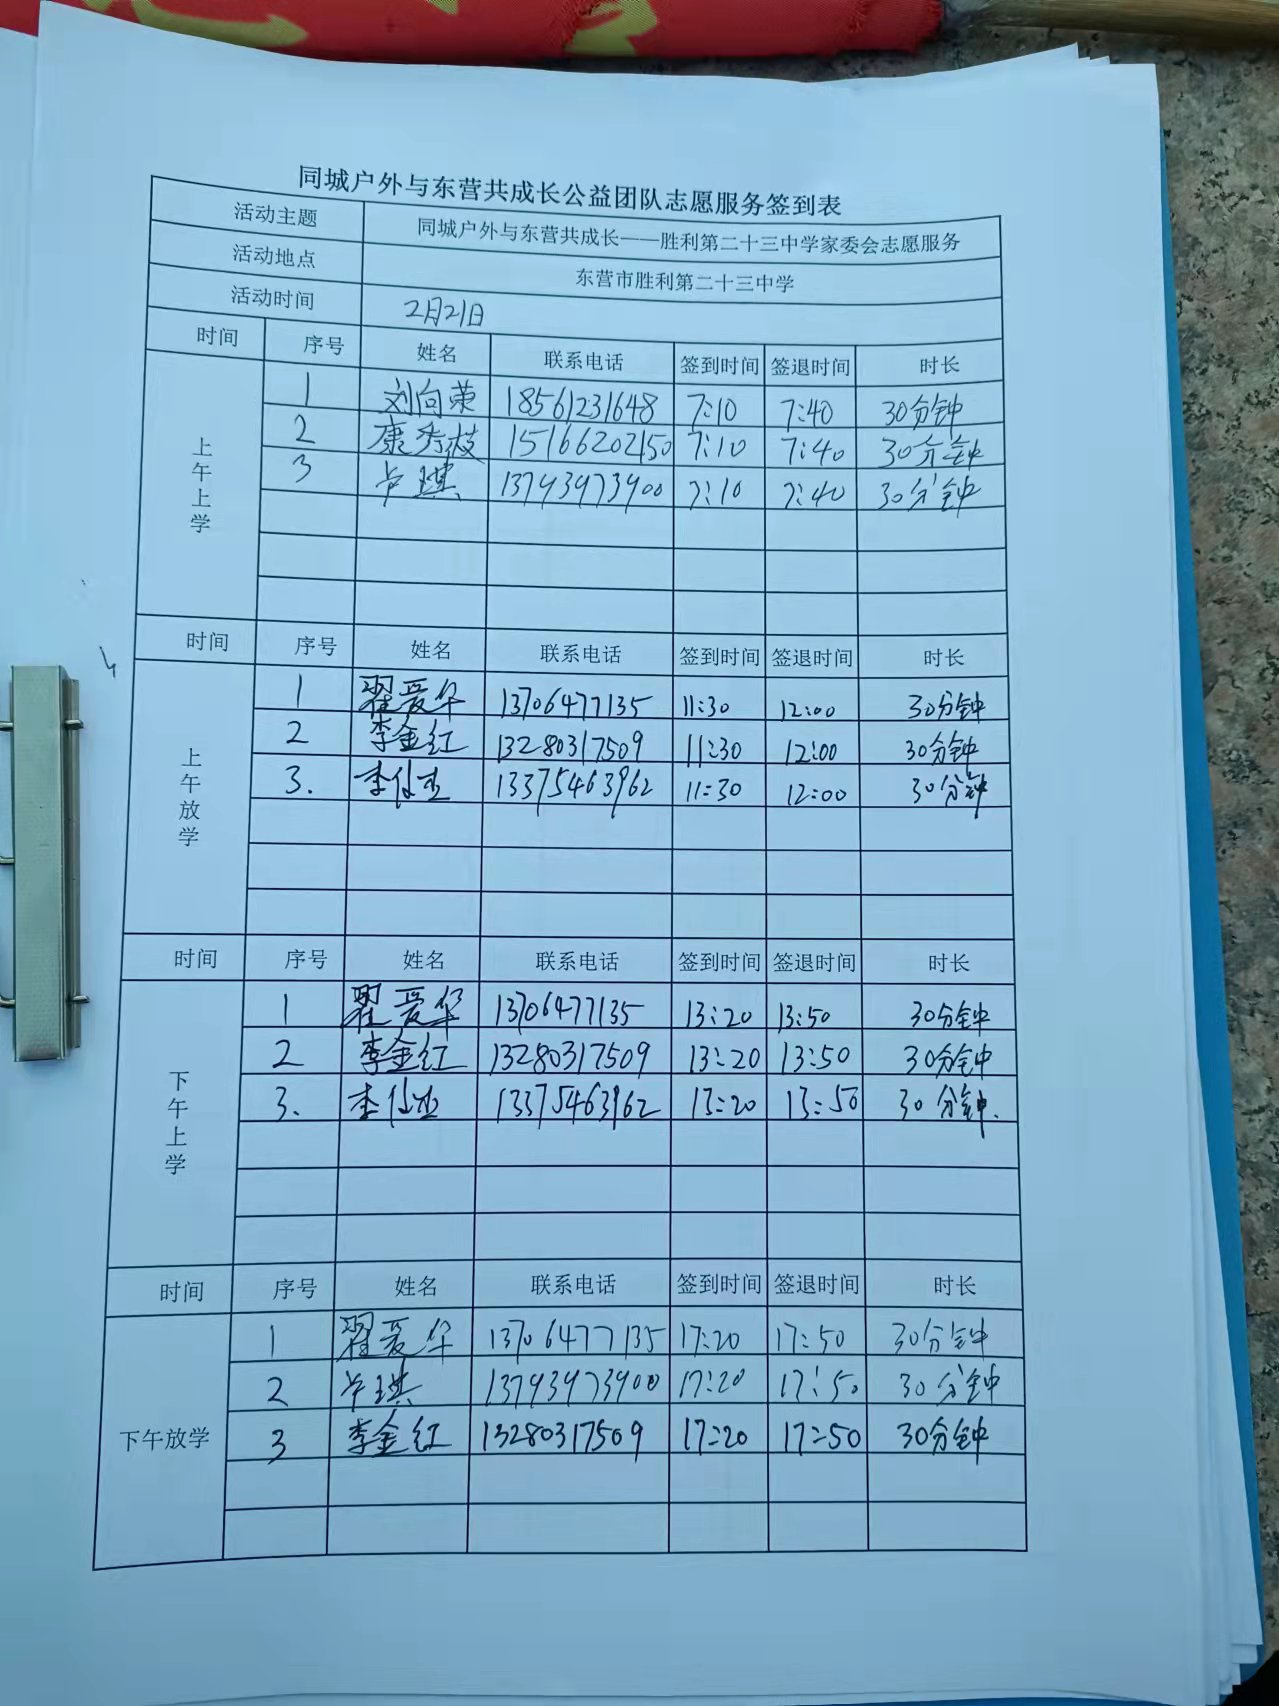 同城户外与东营共成长公益团队志愿服务签到表
活动主题 同城户外与东营共成长——胜利第二十三中学家委会志愿服务
活动地点 东营市胜利第二十三中学
活动时间 2月21日
时间 序号 姓名 联系电话 签到时间 签退时间 时长
上午上学
1 刘向荣 18561231648 7:10 7:40 30分钟
2 康秀枝 15166202150 7:10 7:40 30分钟
3 卢琪 13793973900 7:10 7:40 30分钟
时间 序号 姓名 联系电话 签到时间 签退时间 时长
上午放学
1 翟爱华 13706477135 11:30 12:00 30分钟
2 李金红 13280317509 11:30 12:00 30分钟
3. 李 13375463962 11:30 12:00 30分钟
时间 序号 姓名 联系电话 签到时间 签退时间 时长
下午上学
1 翟爱华 13706477135 13:20 13:50 30分钟
2 李金红 13280317509 13:20 13:50 30分钟
3. 李 13375463962 13:20 13:50 30分钟.
时间 序号 姓名 联系电话 签到时间 签退时间 时长
下午放学
1 翟爱华 13706477135 17:20 17:50 30分钟
2 卢琪 13793973900 17:20 17:50 30分钟
3 李金红 13280317509 17:20 17:50 30分钟